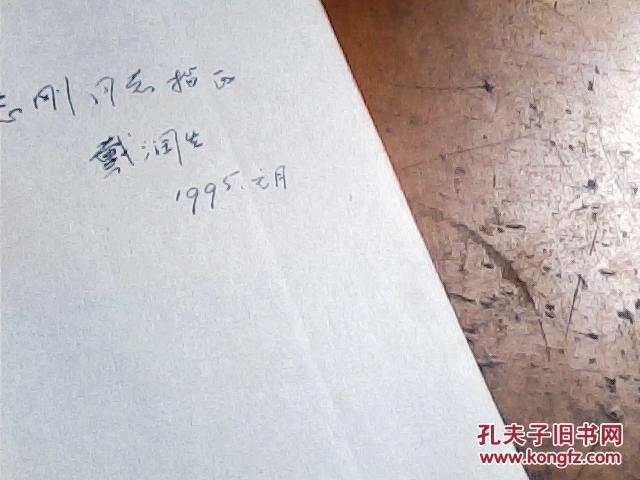 志刚同志指正
戴润生
1995.元月
孔夫子旧书网
www.kongfz.com